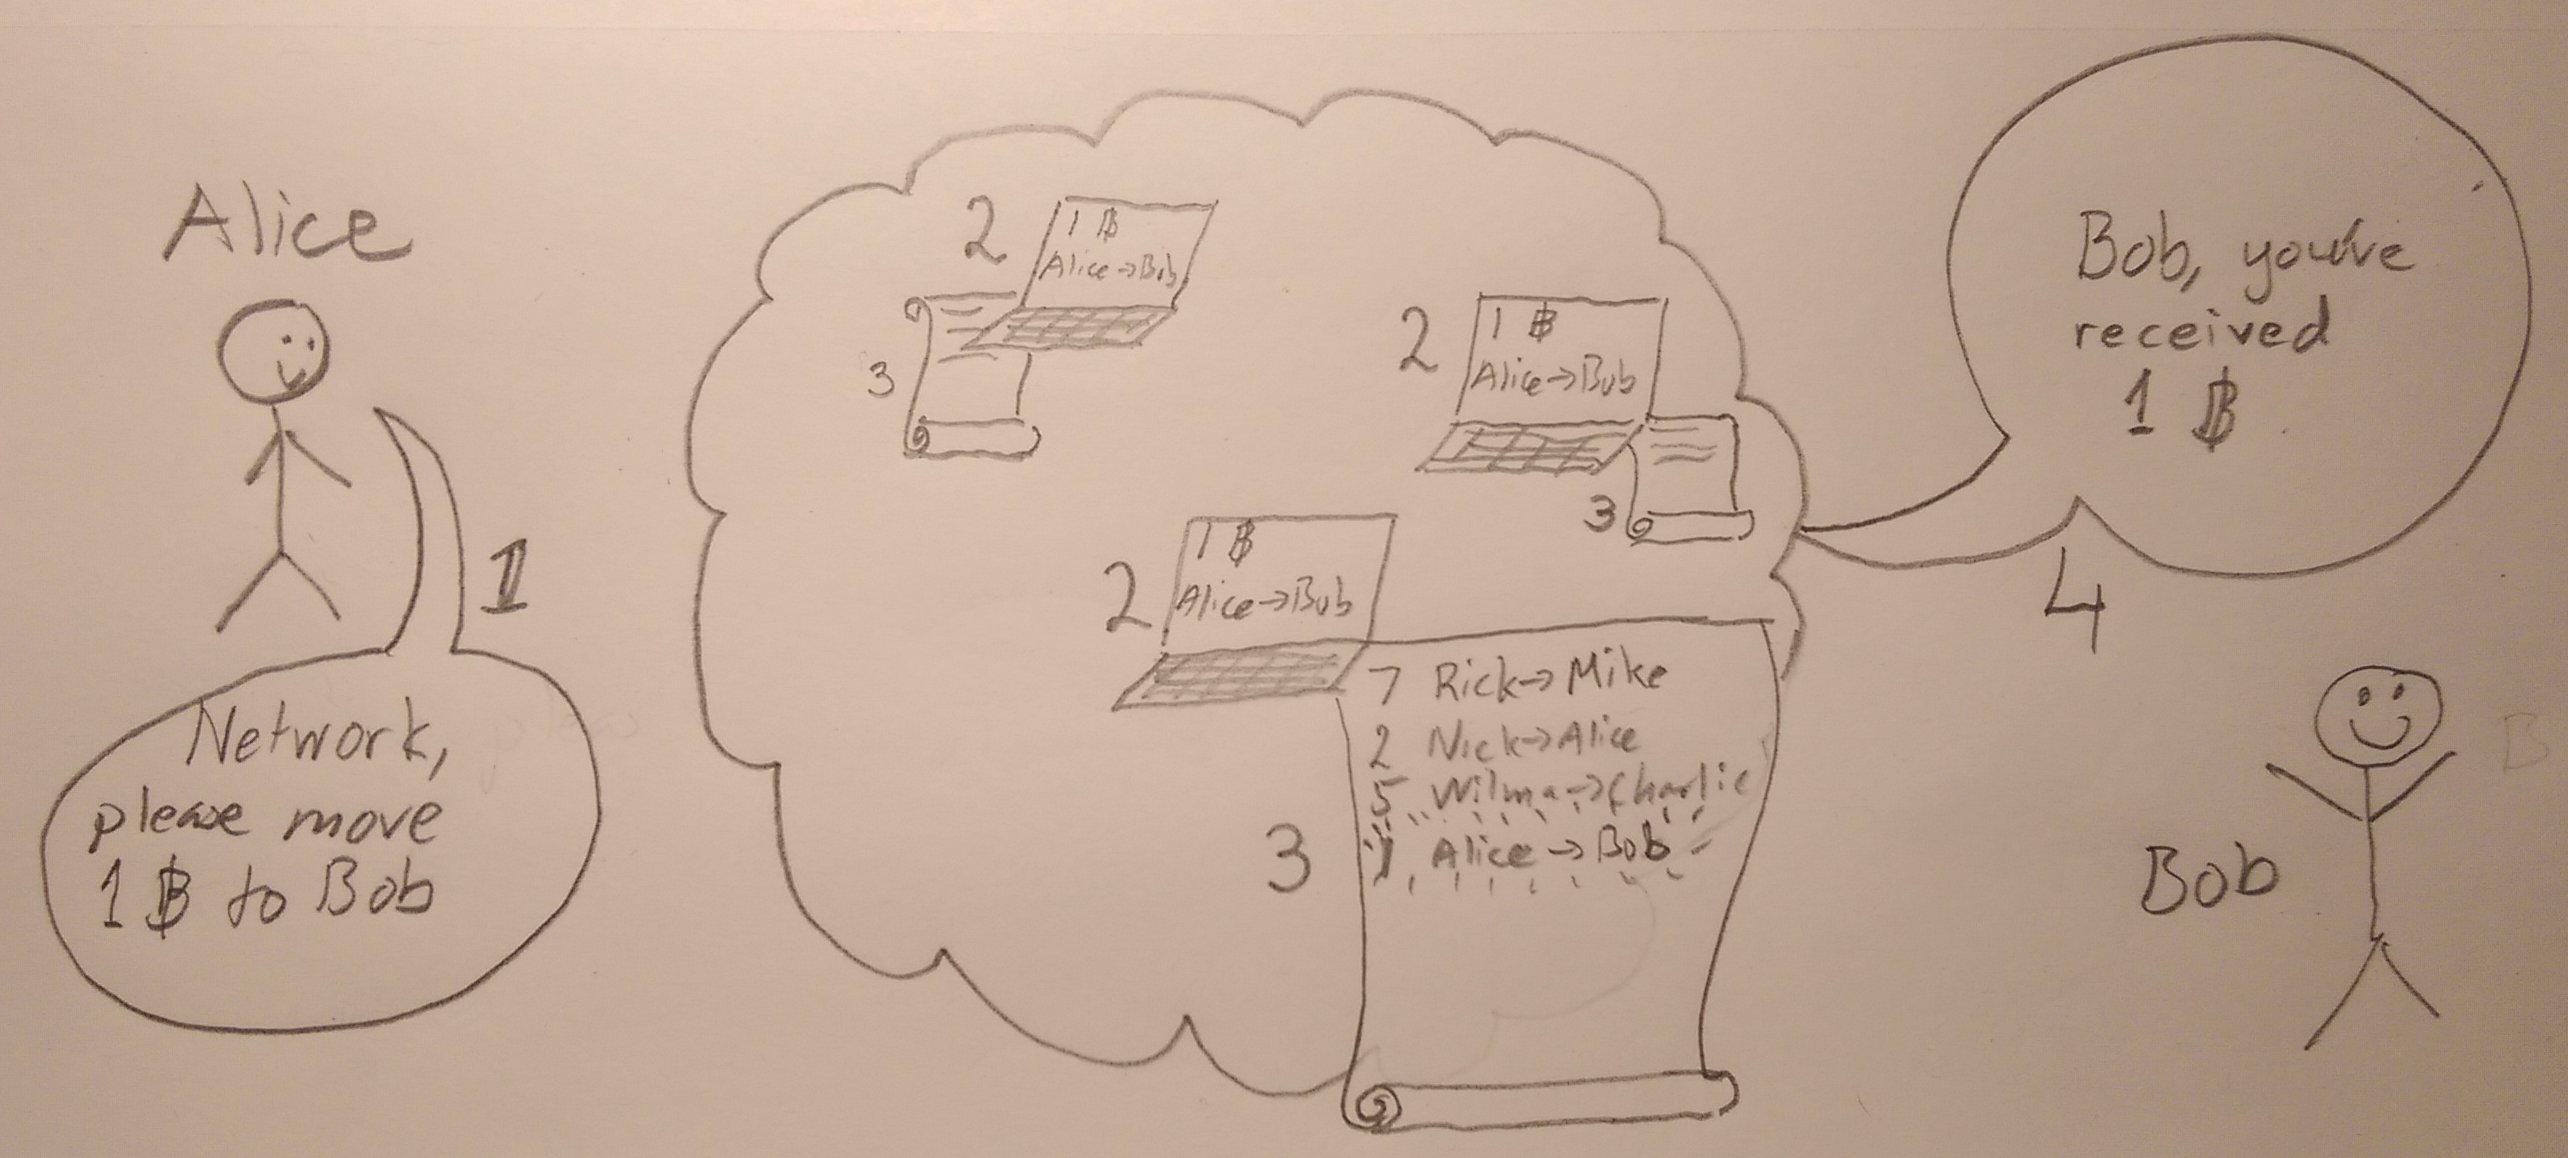 Alice
1
Network,
please move
1 ฿ to Bob
2
1 ฿
Alice→Bob
3
2
1 ฿
Alice→Bob
3
2
1 ฿
Alice→Bob
3
7 Rick→Mike
2 Nick→Alice
5 Wilma→Charlie
1 Alice→Bob
Bob, you've
received
1 ฿
4
Bob